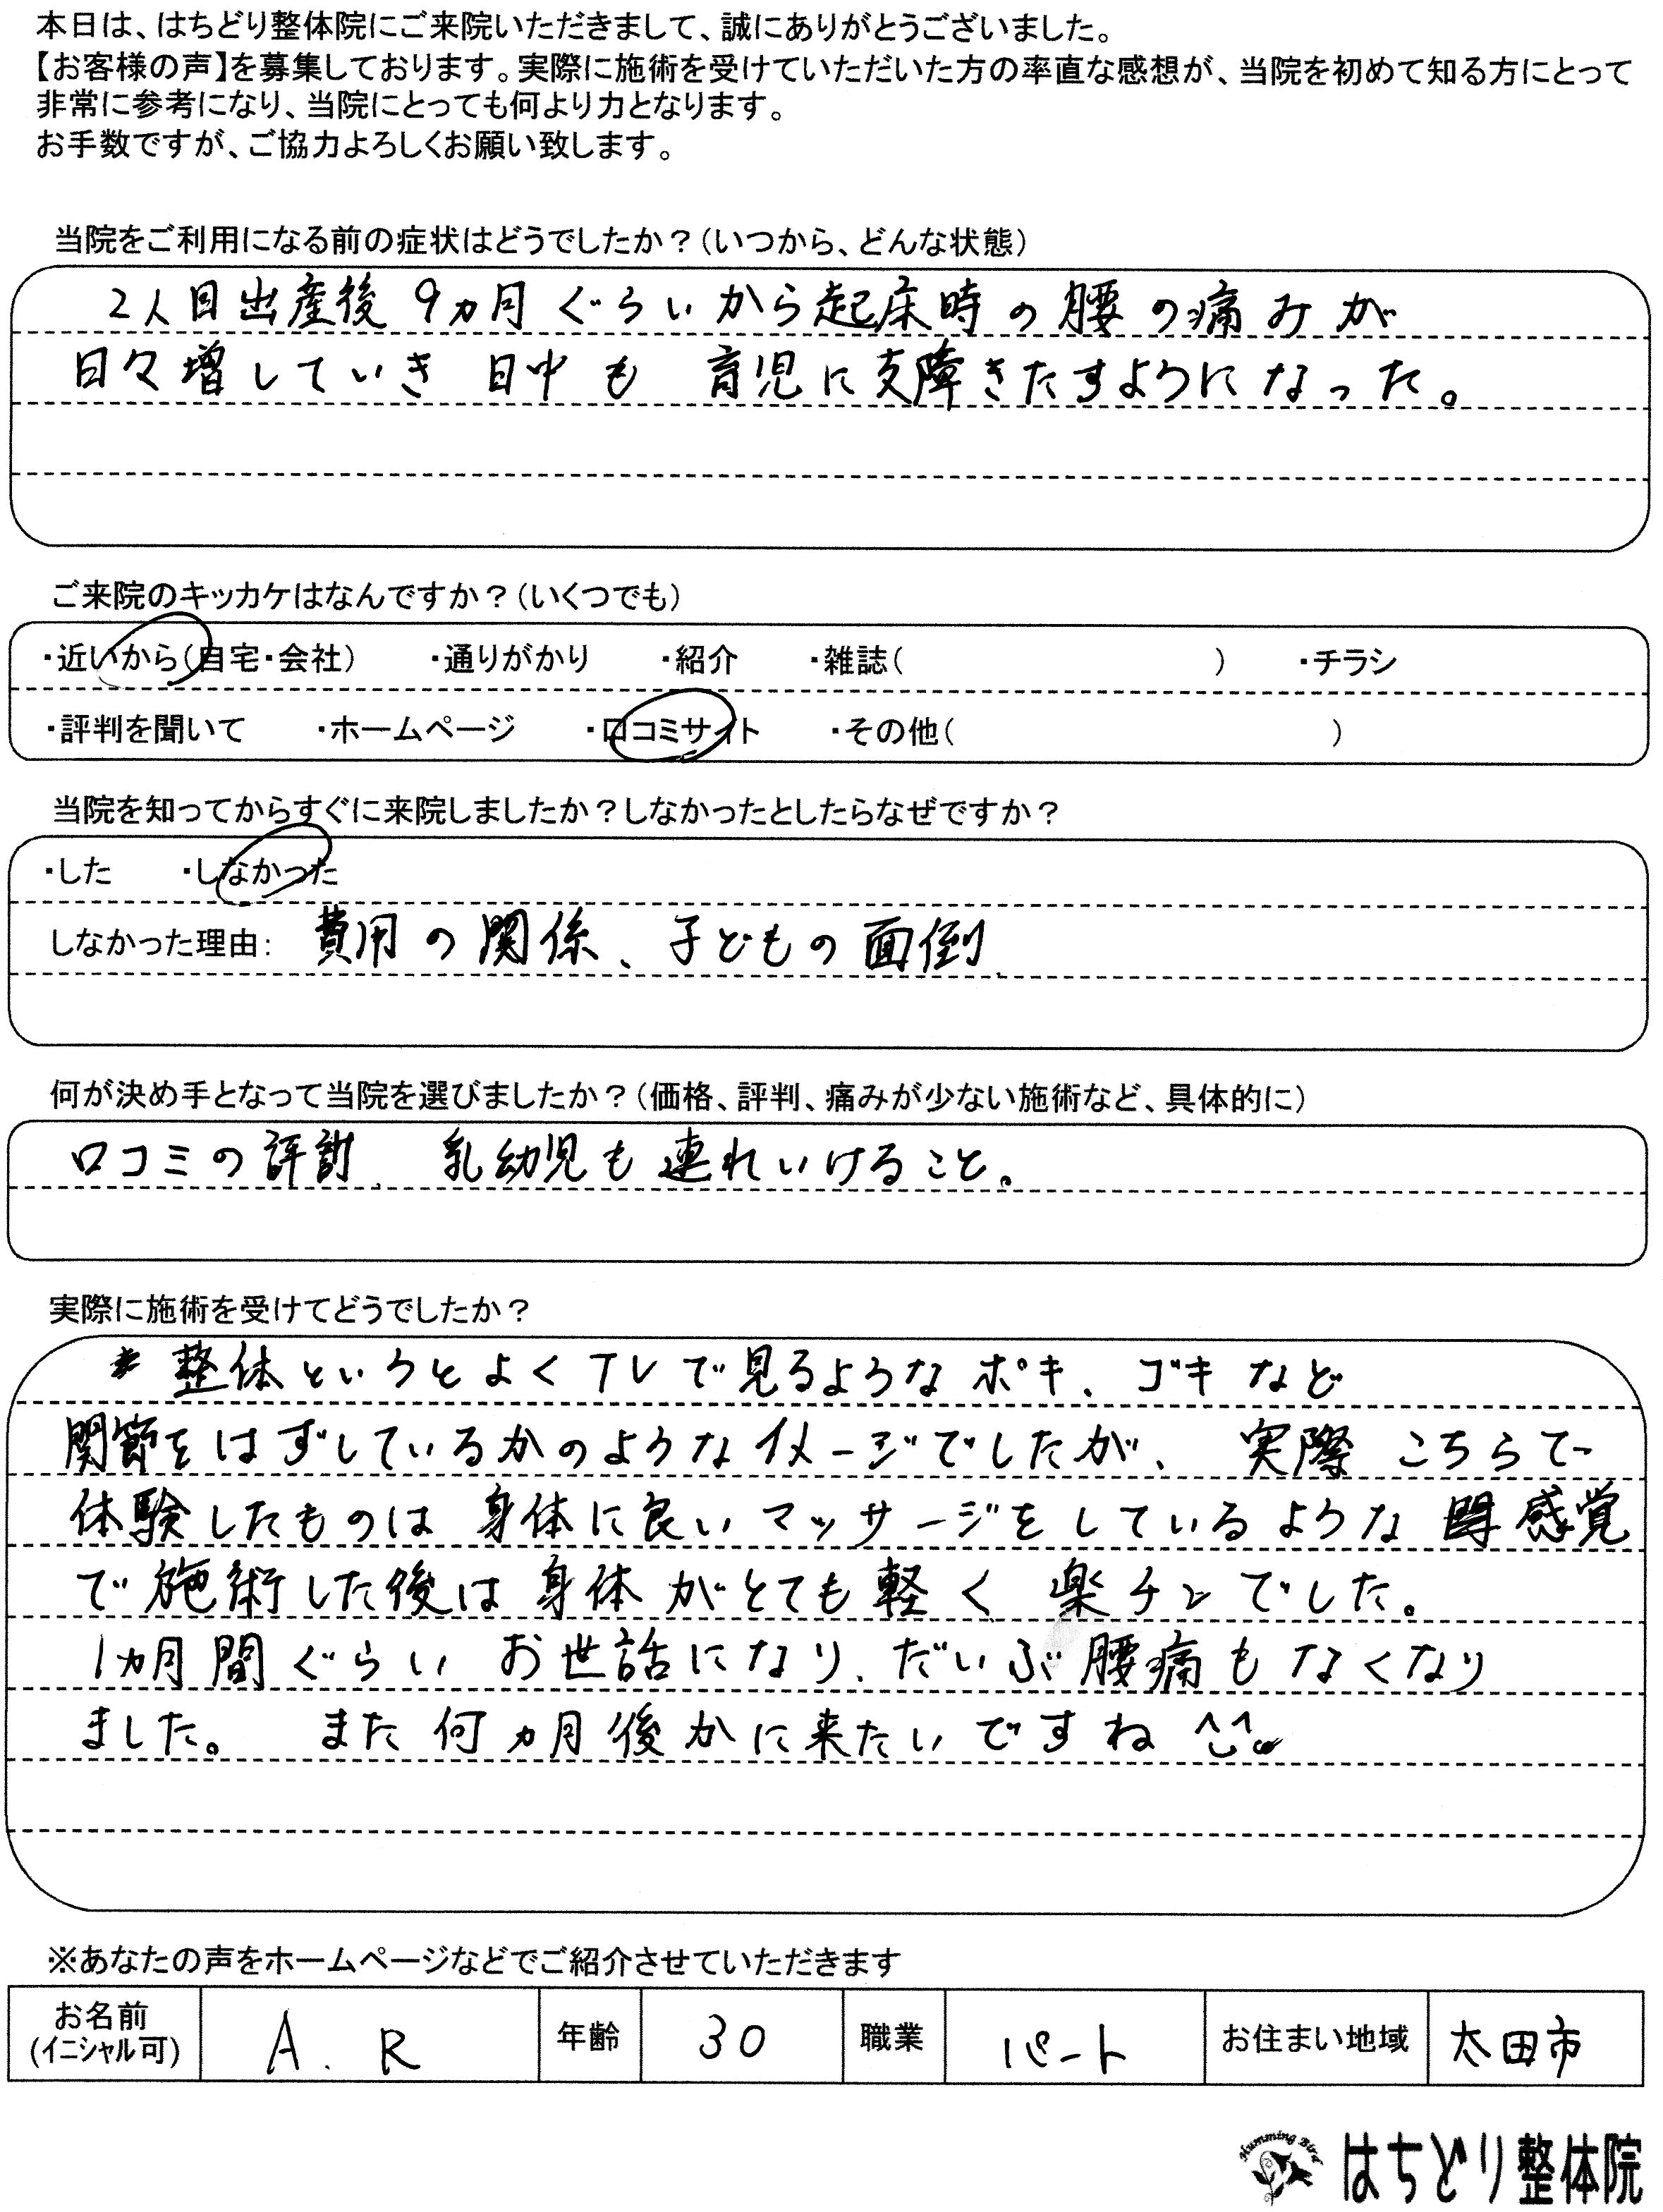 本日は、はちどり整体院にご来院いただきまして、誠にありがとうございました。
【お客様の声】を募集しております。実際に施術を受けていただいた方の率直な感想が、当院を初めて知る方にとって
非常に参考になり、当院にとっても何より力となります。
お手数ですが、ご協力よろしくお願い致します。
当院をご利用になる前の症状はどうでしたか？（いつから、どんな状態）
2人目出産後 9ヵ月ぐらいから起床時の腰の痛みが
日々増していき 日中も 育児に支障きたすようになった。
ご来院のキッカケはなんですか？（いくつでも）
・近いから（自宅・会社） ・通りがかり ・紹介 ・雑誌（ ） ・チラシ
・評判を聞いて ・ホームページ ・口コミサイト ・その他（ ）
当院を知ってからすぐに来院しましたか？しなかったとしたらなぜですか？
・した ・しなかった
しなかった理由： 費用の関係、子どもの面倒
何が決め手となって当院を選びましたか？（価格、評判、痛みが少ない施術など、具体的に）
口コミの評 、乳幼児も連れいけること。
実際に施術を受けてどうでしたか？
* 整体というとよくTVで見るようなポキ、ゴキなど
関節をはずしているかのようなイメージでしたが、実際 こちらで
体験したものは 身体に良いマッサージをしているような 感覚
で施術した後は身体がとても軽く 楽チンでした。
1ヵ月間ぐらい お世話になり、だいぶ腰痛もなくなり
ました。 また何ヵ月後かに来たいですね ^^
※あなたの声をホームページなどでご紹介させていただきます
お名前 (イニシャル可) A．R 年齢 30 職業 パート お住まい地域 太田市
Humming Bird はちどり整体院